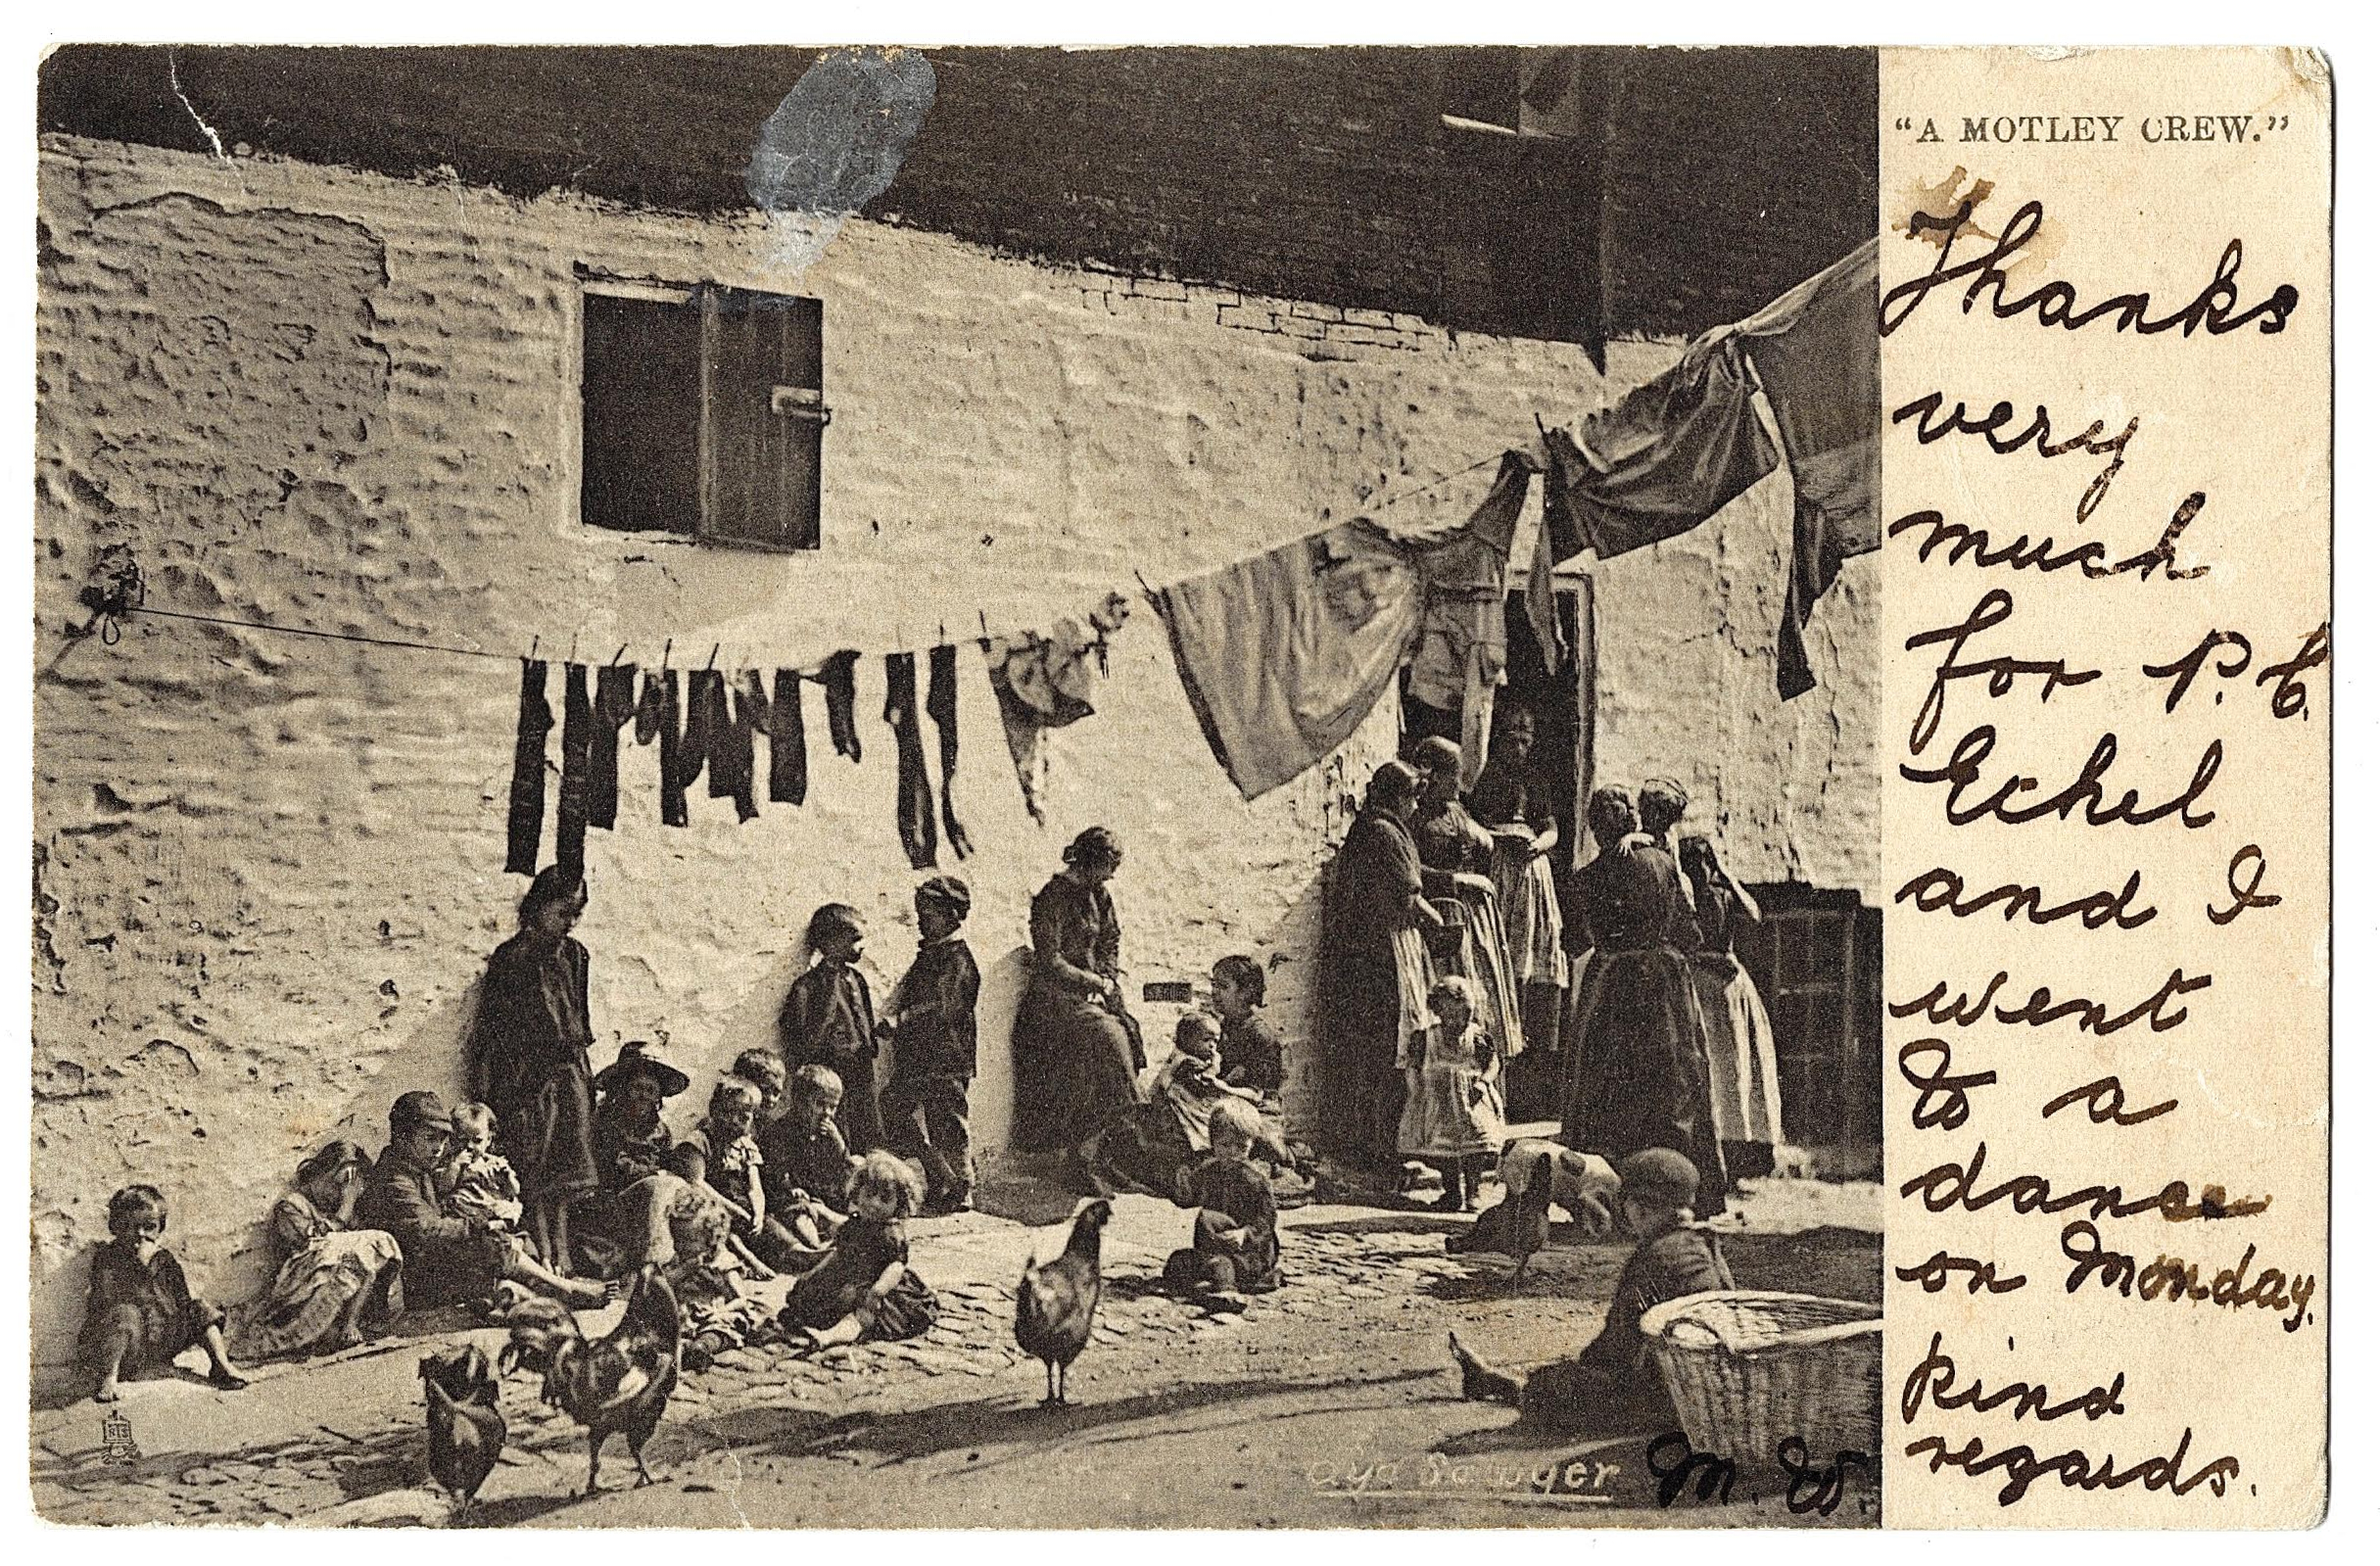 "A MOTLEY CREW."
Thanks
very
much
for P.C.
Echel
and I
went
to a
dance
on Monday.
kind
regards.
M. W.
Sawyer